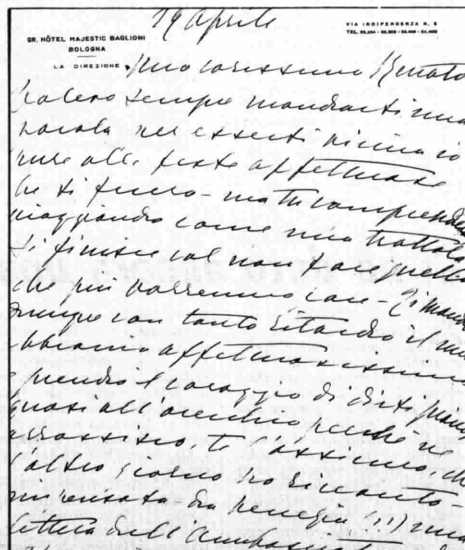 29 Aprile
GR. HÔTEL MAJESTIC BAGLIONI
BOLOGNA
LA DIREZIONE
VIA INDIPENDENZA N. 8
TEL.
mio carissimo Renato
volevo sempre mandarti una
parola per esserti vicina io
pure alle feste affettuose
che ti fecero - ma tu comprendi
viaggiando come una trottola
si finisce col non fare quello
che più vorremmo fare - Ti mando
dunque con tanto ritardo il mio
abbraccio affettuosissimo
e prendo il coraggio di dirti
quasi all'orecchio perché
l'altro giorno ho ricevuto
da Venezia una
lettera dell'